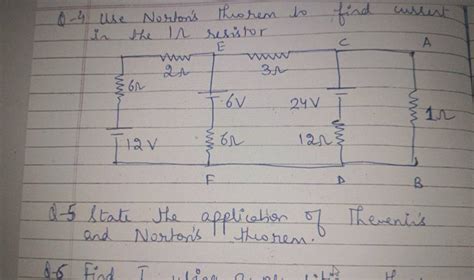 Q-4 Use Norton's theorem to find current
in the 1Ω resistor
E C A
2Ω 3Ω
6Ω
6V 24V 1Ω
12V 6Ω 12Ω
F D B
Q-5 State the application of Thevenin's
and Norton's theorem.
Q-6 Find I using